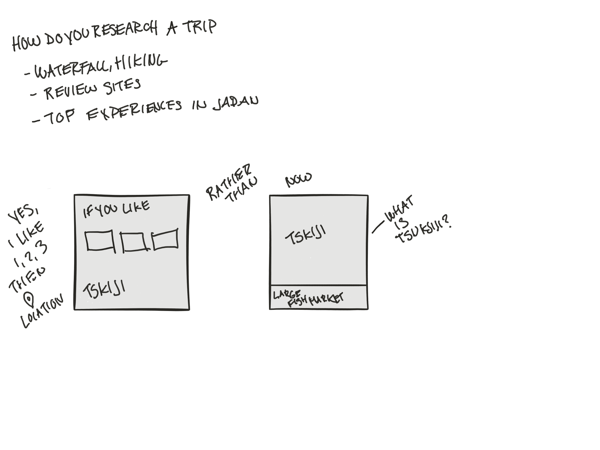 HOW DO YOU RESEARCH A TRIP
- WATERFALL, HIKING
- REVIEW SITES
- TOP EXPERIENCES IN JADAN
YES,
I LIKE
1, 2, 3
THEN
LOCATION
IF YOU LIKE
TSKIJI
RATHER
THAN
NOW
TSKIJI
LARGE
FISH MARKET
WHAT
IS
TSUKSIJI?